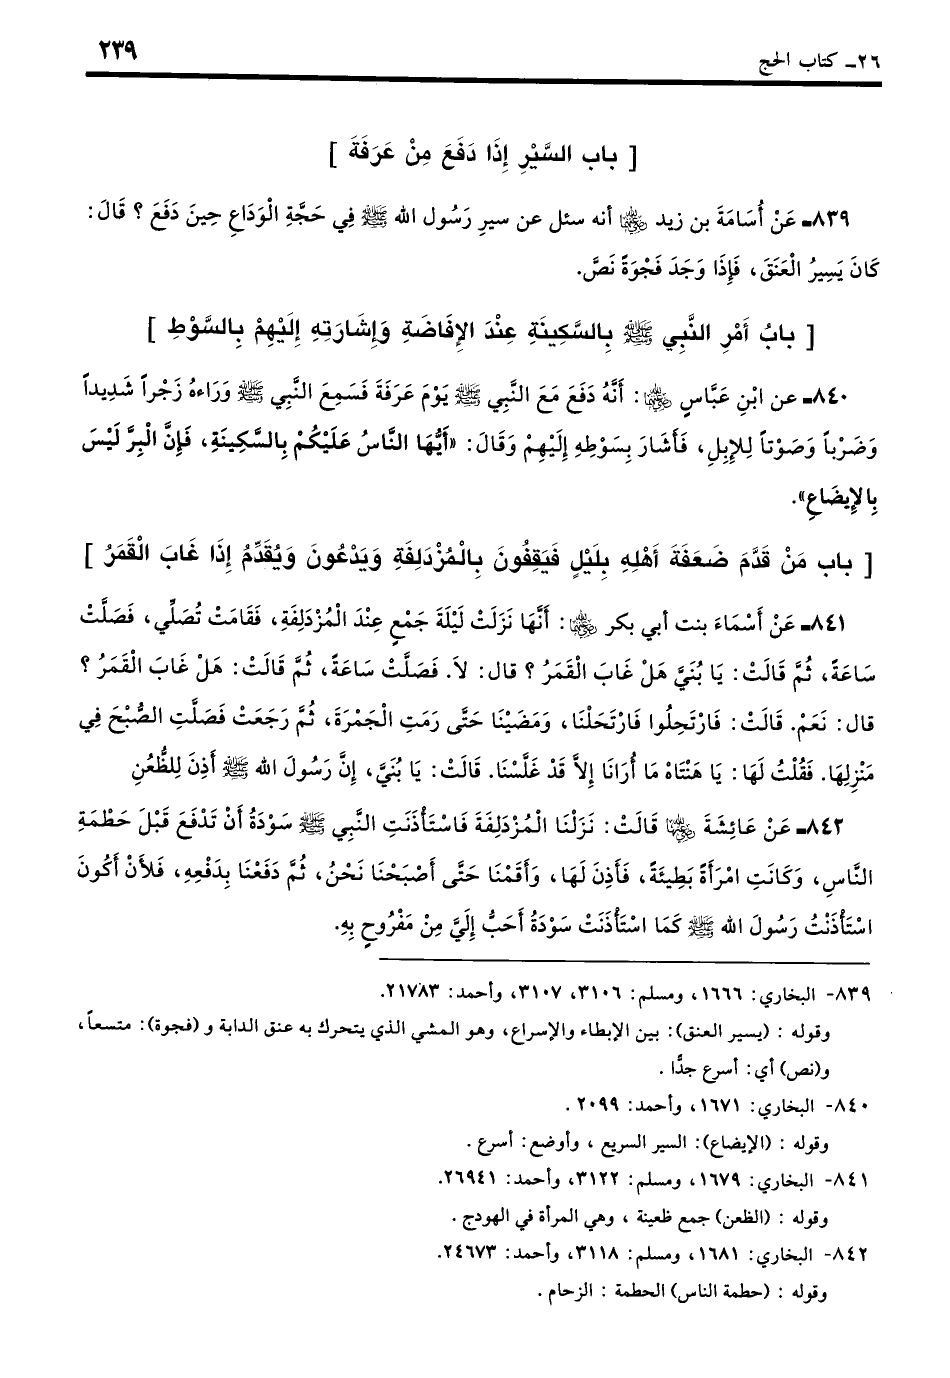 ٢٦ـ كتاب الحج
٢٣٩
[ باب السَّيْرِ إِذَا دَفَعَ مِنْ عَرَفَةَ ]
٨٣٩ـ عَنْ أُسَامَةَ بن زيد رضي الله عنهما أنه سئل عن سيرِ رَسُولِ الله ﷺ فِي حَجَّةِ الْوَدَاعِ حِينَ دَفَعَ ؟ قَالَ:
كَانَ يَسِيرُ الْعَنَقَ، فَإِذَا وَجَدَ فَجْوَةً نَصَّ.
[ بابُ أَمْرِ النَّبِي ﷺ بِالسَّكِينَةِ عِنْدَ الإِفَاضَةِ وَإِشَارَتِهِ إِلَيْهِمْ بِالسَّوْطِ ]
٨٤٠ـ عن ابْنِ عَبَّاسٍ رضي الله عنهما: أَنَّهُ دَفَعَ مَعَ النَّبِي ﷺ يَوْمَ عَرَفَةَ فَسَمِعَ النَّبِي ﷺ وَرَاءهُ زَجْراً شَدِيداً
وَضَرْباً وَصَوْتاً لِلإِبِلِ، فَأَشَارَ بِسَوْطِهِ إِلَيْهِمْ وَقَالَ: «أَيُّهَا النَّاسُ عَلَيْكُمْ بِالسَّكِينَةِ، فَإِنَّ الْبِرَّ لَيْسَ
بِالإِيضَاعِ».
[ باب مَنْ قَدَّمَ ضَعَفَةَ أَهْلِهِ بِلَيْلٍ فَيَقِفُونَ بِالْمُزْدَلِفَةِ وَيَدْعُونَ وَيُقَدِّمُ إِذَا غَابَ الْقَمَرُ ]
٨٤١ـ عَنْ أَسْمَاءَ بنت أبي بكر رضي الله عنهما: أَنَّهَا نَزَلَتْ لَيْلَةَ جَمْعٍ عِنْدَ الْمُزْدَلِفَةِ، فَقَامَتْ تُصَلِّي، فَصَلَّتْ
سَاعَةً، ثُمَّ قَالَتْ: يَا بُنَيَّ هَلْ غَابَ الْقَمَرُ ؟ قال: لاَ. فَصَلَّتْ سَاعَةً، ثُمَّ قَالَتْ: هَلْ غَابَ الْقَمَرُ ؟
قال: نَعَمْ. قَالَتْ: فَارْتَحِلُوا فَارْتَحَلْنَا، وَمَضَيْنَا حَتَّى رَمَتِ الْجَمْرَةَ، ثُمَّ رَجَعَتْ فَصَلَّتِ الصُّبْحَ فِي
مَنْزِلِهَا. فَقُلْتُ لَهَا: يَا هَنْتَاهْ مَا أُرَانَا إِلاَّ قَدْ غَلَّسْنَا. قَالَتْ: يَا بُنَيَّ، إِنَّ رَسُولَ الله ﷺ أَذِنَ لِلظُّعُنِ
٨٤٢ـ عَنْ عَائِشَةَ رضي الله عنها قَالَتْ: نَزَلْنَا الْمُزْدَلِفَةَ فَاسْتَأْذَنَتِ النَّبِي ﷺ سَوْدَةُ أَنْ تَدْفَعَ قَبْلَ حَطْمَةِ
النَّاسِ، وَكَانَتِ امْرَأَةً بَطِيئَةً، فَأَذِنَ لَهَا، وَأَقَمْنَا حَتَّى أَصْبَحْنَا نَحْنُ، ثُمَّ دَفَعْنَا بِدَفْعِهِ، فَلأَنْ أَكُونَ
اسْتَأْذَنْتُ رَسُولَ الله ﷺ كَمَا اسْتَأْذَنَتْ سَوْدَةُ أَحَبُّ إِلَيَّ مِنْ مَفْرُوحٍ بِهِ.
٨٣٩- البخاري: ١٦٦٦، ومسلم: ٣١٠٦، ٣١٠٧، وأحمد: ٢١٧٨٣.
وقوله : (يسير العنق): بين الإبطاء والإسراع، وهو المشي الذي يتحرك به عنق الدابة و (فجوة): متسعاً،
و(نص) أي: أسرع جدًّا .
٨٤٠- البخاري: ١٦٧١، وأحمد: ٢٠٩٩ .
وقوله : (الإيضاع): السير السريع ، وأوضع: أسرع .
٨٤١- البخاري: ١٦٧٩، ومسلم: ٣١٢٢، وأحمد: ٢٦٩٤١.
وقوله : (الظعن) جمع ظعينة ، وهي المرأة في الهودج .
٨٤٢- البخاري: ١٦٨١، ومسلم: ٣١١٨، وأحمد: ٢٤٦٧٣.
وقوله : (حطمة الناس) الحطمة : الزحام .